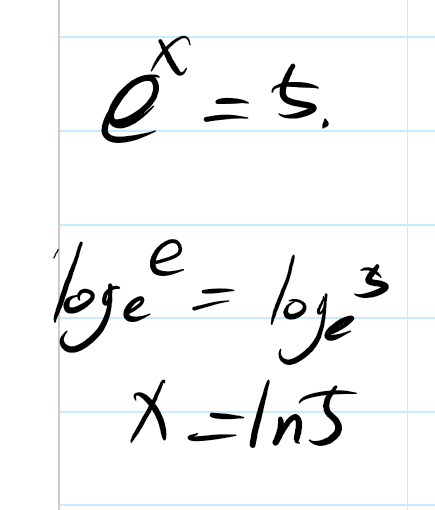 e^x = 5.
log_e e = log_e 5
x = ln5